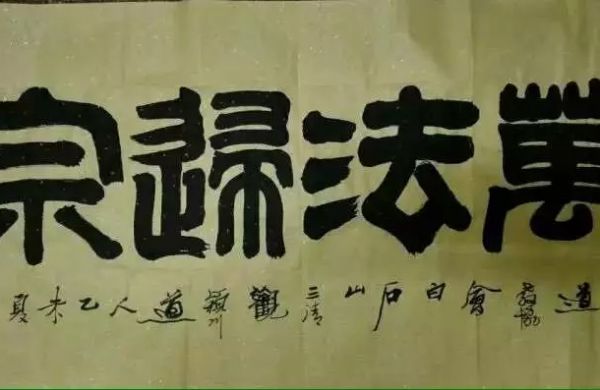 萬法歸宗
道教協會白石山三清觀潁川道人乙未夏